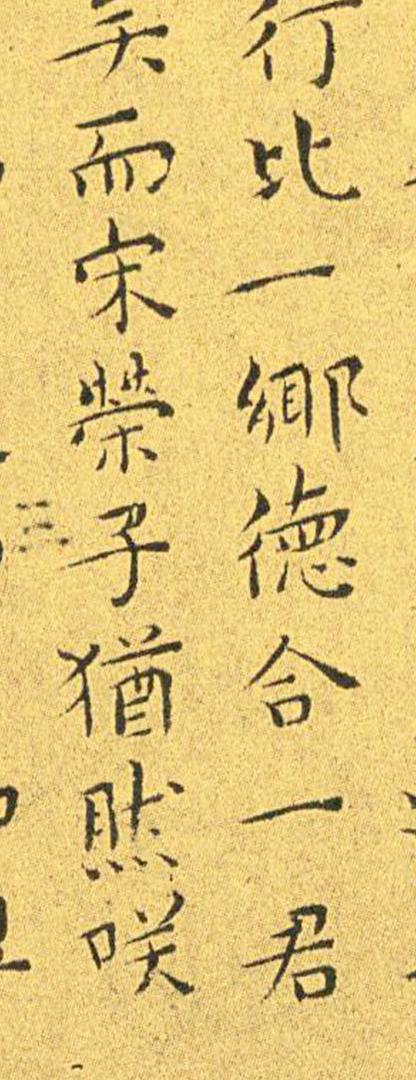 行比一鄉德合一君
矣而宋榮子猶然咲